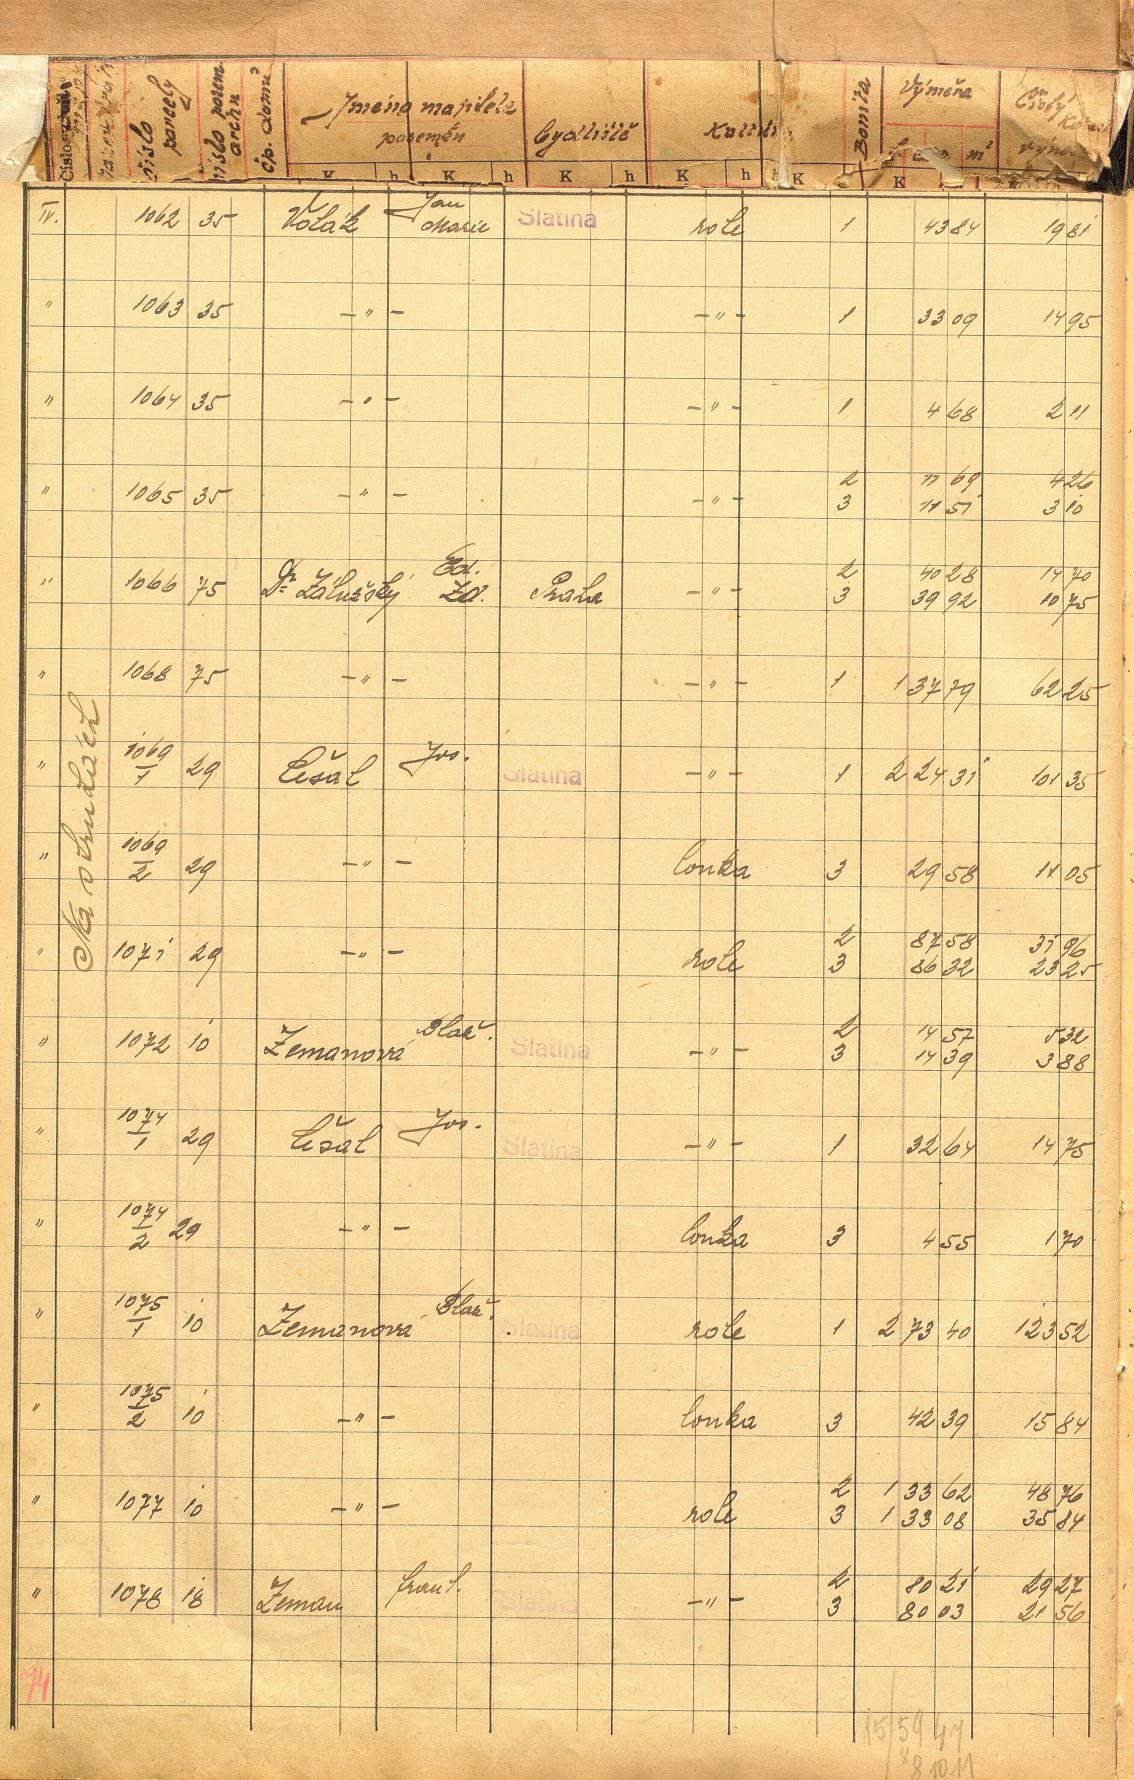 číslo parcely
číslo pozem. archu
čp. domu
Jméno majitele pozemku
bydliště
Bonita
Výměra
m²
Čistý
K h K h K h K h K K
IV. 1062 35 Volák Jan Marie Slatina role 1 43 84 19 81
" 1063 35 – " – – " – 1 33 09 14 95
" 1064 35 – " – – " – 1 4 68 2 11
" 1065 35 – " – – " – 2 11 69 4 26
3 11 51 3 10
" 1066 75 Dr Zálužský Ed. Zd. Praha – " – 2 40 28 14 70
3 39 92 10 75
" 1068 75 – " – – " – 1 1 37 79 62 25
" 1069/1 29 Češal Jos. Slatina – " – 1 2 24 31 101 35
" 1069/2 29 – " – louka 3 29 58 11 05
" 1071 29 – " – role 2 87 58 31 96
3 86 32 23 25
" 1072 10 Zemanová Slatina – " – 2 14 57 5 32
3 14 39 3 88
" 1074/1 29 Češal Jos. Slatina – " – 1 32 64 14 75
" 1074/2 29 – " – louka 3 4 55 1 70
" 1075/1 10 Zemanová Slatina role 1 2 73 40 123 52
" 1075/2 10 – " – louka 3 42 39 15 84
" 1077 10 – " – role 2 1 33 62 48 76
3 1 33 08 35 84
" 1078 18 Zeman Frant. Slatina – " – 2 80 21 29 27
3 80 03 21 56
74
15 59 47